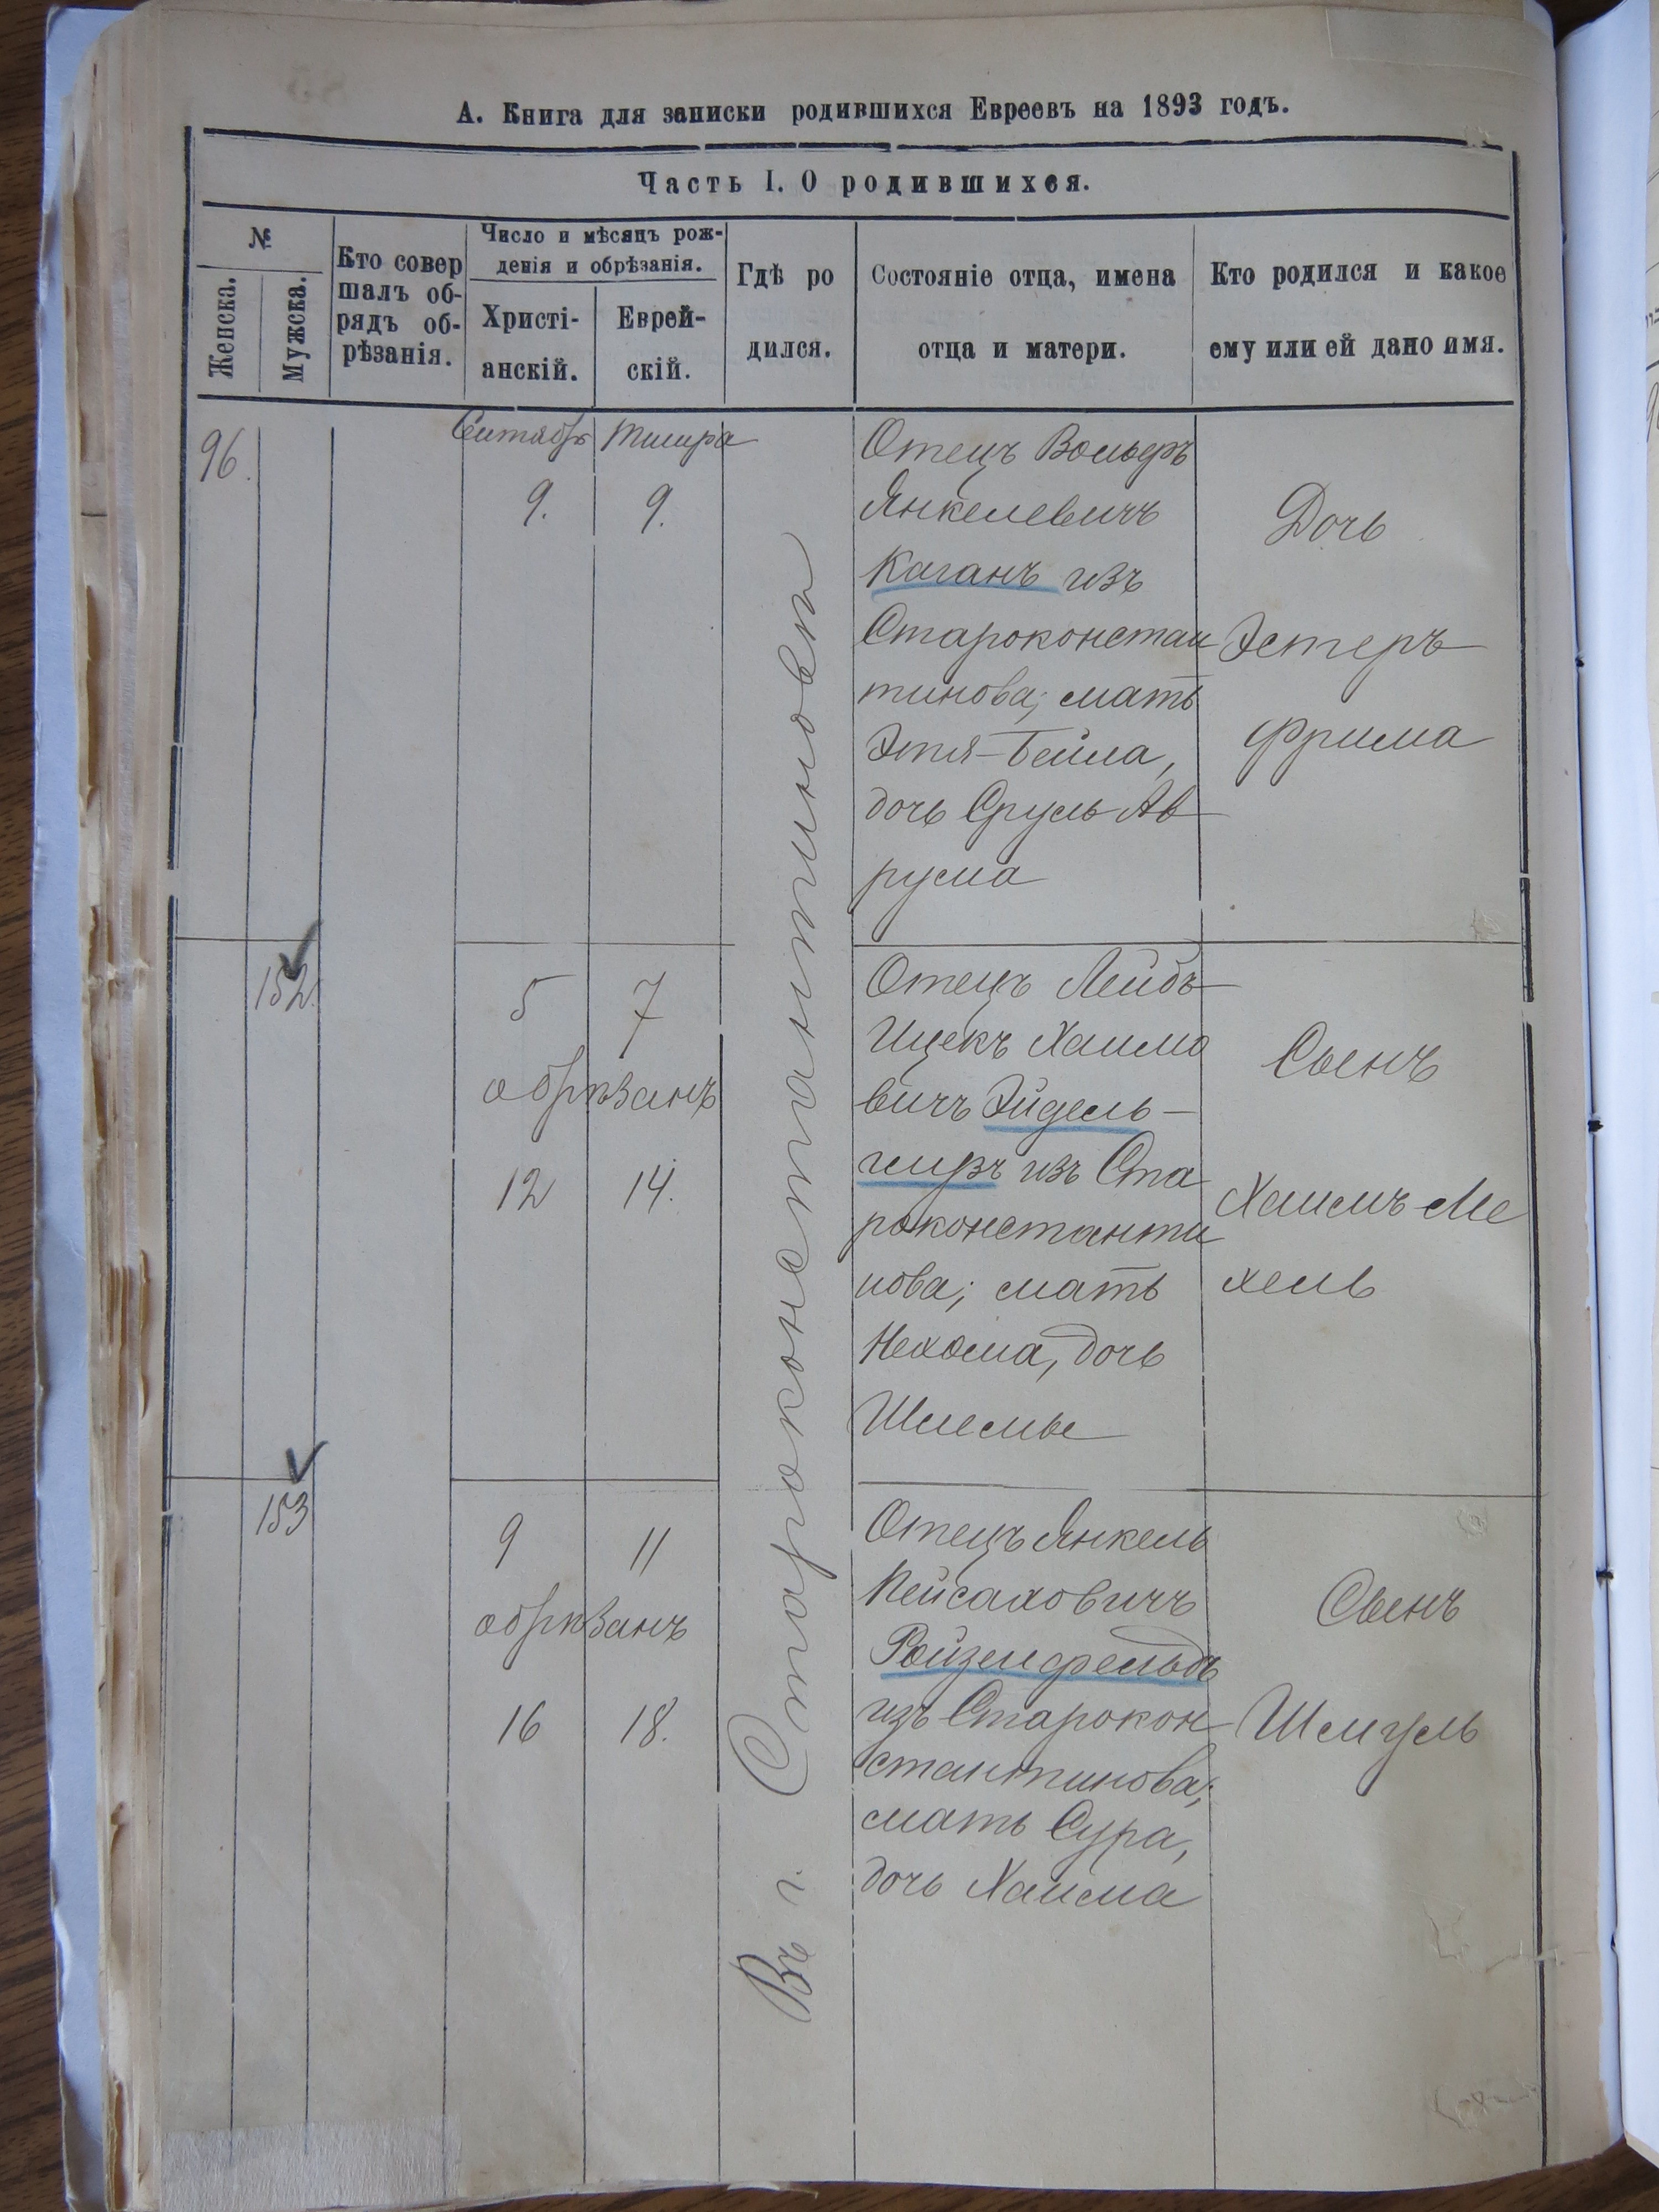 А. Книга для записки родившихся Евреевъ на 1893 годъ.
Часть I. О родившихся.
№
Женска.
Мужска.
Кто совер
шалъ об-
рядъ об-
рѣзанія.
Число и мѣсяцъ рож-
денія и обрѣзанія.
Христі-
анскій.
Еврей-
скій.
Гдѣ ро
дился.
Состояніе отца, имена
отца и матери.
Кто родился и какое
ему или ей дано имя.
Въ г. Староконстантиновѣ
96.
Сентябрь
Тишра
9.
9.
Отецъ Вольфъ
Янкелевичъ
Каганъ изъ
Староконстан
тинова; мать
Этя-Бейла,
дочь Сруль Ав
рума
Дочь
Эстеръ
Фрима
152.
5
7
обрѣзанъ
12
14.
Отецъ Лейбъ
Ицекъ Хаимо
вичъ Эйдель-
изъ Ста
роконстанти
нова; мать
Нехома, дочь
Шлемы
Сынъ
Хаимъ Ме
хель
153
9
11
обрѣзанъ
16
18.
Отецъ Янкель
Пейсаховичъ
Ройзенфельдъ
изъ Старокон
стантинова;
мать Сура,
дочь Хаима
Сынъ
Шмуль